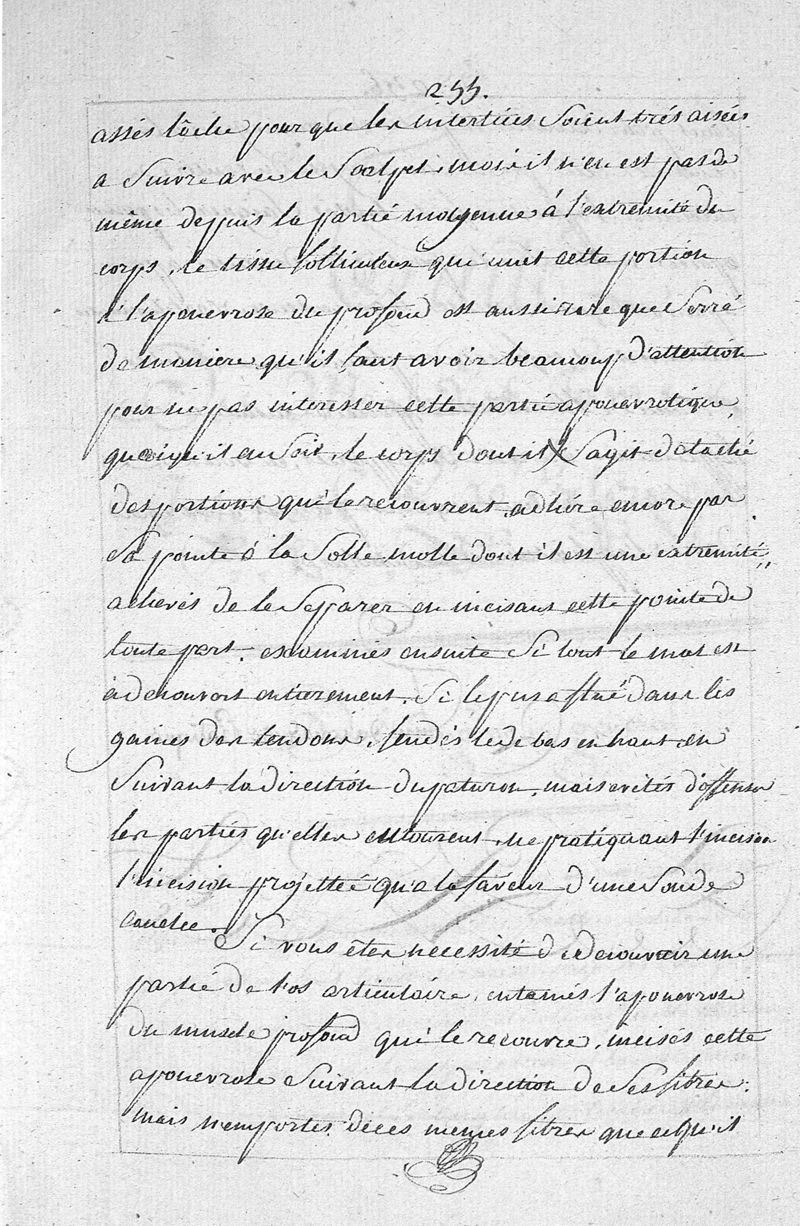 255.
assés lâche pour que les intertices soient trés aisées
a suivre avec le scalpel, mais il n'en est pas de
même depuis la partie moÿenne á l'extremité du
corps, le tissu folliculeux qui unit cette portion
á l'aponevrose du profond est aussi rare que serré
de maniere qu'il faut avoir beaucoup d'attention
pour ne pas interesser cette partie aponevrotique,
quoiqu'il en soit, le corps dont il s'agit detaché
des portions qui le recouvrent, adhére encore par
sa pointe á la solle molle dont il est une extremité,,
achevés de le separer en incisant cette pointe de
toute part. examinés ensuite si tout le mal est
à decouvert entierement. si le pus a flué dans les
gaines des tendons, fendés le de bas en haut en
suivant la direction du paturon, mais evités d'offenser
les parties qu'elles entourent, ne pratiquant l'incision
l'incision projettée qu'a la faveur d'une sonde
canelée. Si vous étes necessité de decouvrir une
partie de l'os articulaire, entamés l'aponevrose
du muscle profond qui le recouvre, incisés cette
aponevrose suivant la direction de ses fibres.
mais n'emportés de ces mémes fibres que ce qu'il